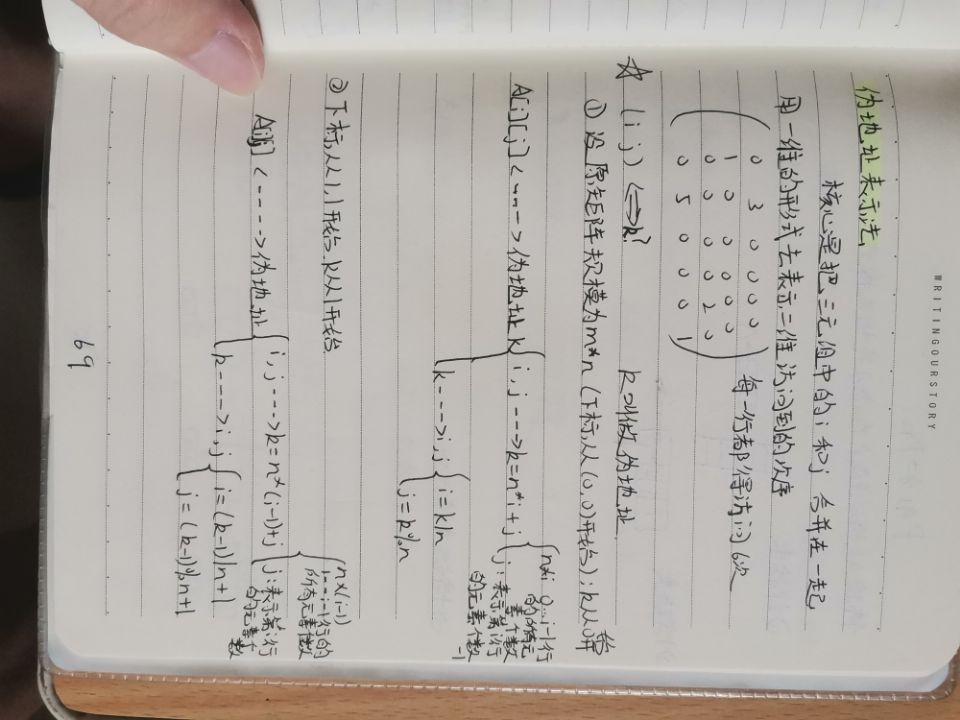 WRITINGOURSTORY
伪地址表示法
核心是把三元组中的i和j合并在一起
用一维的形式去表示二维访问到的次序
0 3 0 0 0
1 0 0 0 0
0 0 0 2 0
0 5 0 0 1
每一行都得访问6次
☆ (i j) <=> k?
k叫做伪地址
① 设原矩阵规模为m*n(下标从(0,0)开始);k从0开始
A[i][j] <----> 伪地址k
i,j ---> k=n*i+j
n*i 0...i-1行的所有元素个数
j:表示第i行的元素个数-1
k ---> i,j
i=k/n
j=k%n
② 下标从1,1开始.k从1开始
A[i][j] <----> 伪地址
i,j ---> k=n*(i-1)+j
n*(i-1) 1--i-1行的所有元素个数
j:表示第i行的元素个数
k ---> i,j
i=(k-1)/n+1
j=(k-1)%n+1
69